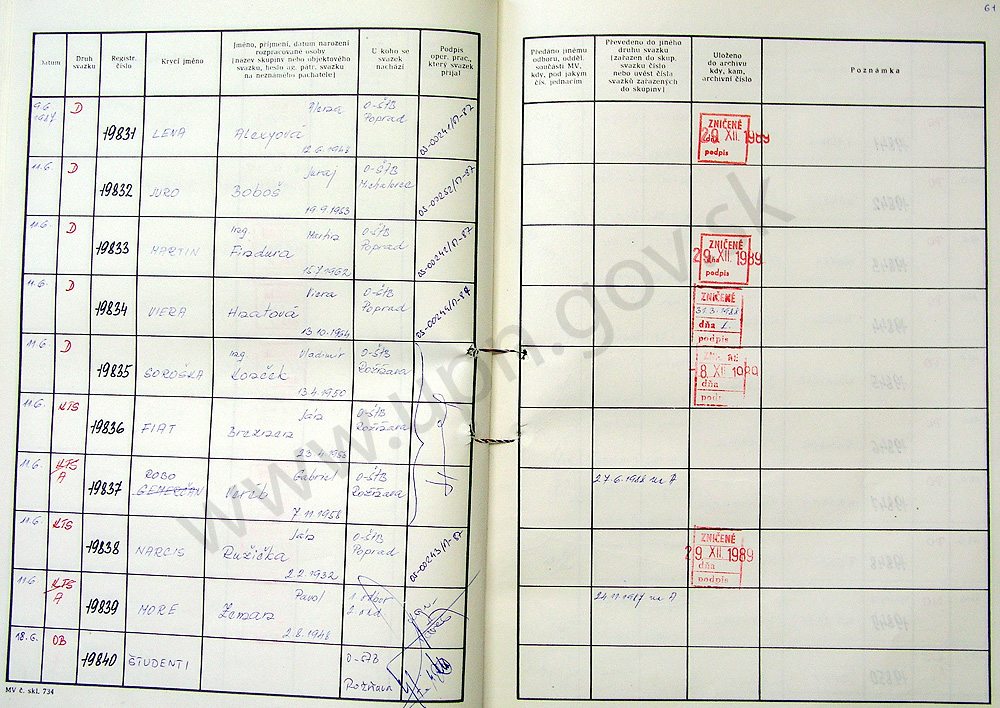 61
Datum
Druh svazku
Registr. číslo
Krycí jméno
Jméno, příjmení, datum narození
rozpracované osoby
[název skupiny nebo objektového
svazku, heslo ag. pátr. svazku
na neznámého pachatele]
U koho se
svazek
nachází
Podpis
oper. prac.,
který svazek
přijal
Předáno jinému
odboru, odděl.
součásti MV,
kdy, pod jakým
čís. jednacím
Převedeno do jiného
druhu svazku
[zařazen do skup.
svazku číslo
nebo uvést čísla
svazků zařazených
do skupiny]
Uloženo
do archivu
kdy, kam,
archivní číslo
Poznámka
9.6. 1987 D 19831 LENA Alexyová 12.6.1948 O-ŠtB Poprad OS-00241/17-87
ZNIČENÉ 29. XII. 1989 dňa podpis
11.6. D 19832 JURO Juraj Boboš 19.9.1953 O-ŠTB Michalovce OS-00252/17-87
11.6. D 19833 MARTIN Ing. Martin Findura 15.7.1962 O-ŠtB Poprad OS-00242/17-87
ZNIČENÉ 29. XII. 1989 dňa podpis
11.6. D 19834 VIERA Viera Hnatová 13.10.1964 O-ŠtB Poprad OS-00244/17-87
ZNIČENÉ 31.3.1988 dňa podpis
11.6. D 19835 Ing. Vladimír 13.4.1950 O-ŠTB Rožňava
8. XII. 1989 dňa
11.6. KTS 19836 FIAT Ján O-ŠTB Rožňava
11.6. KTS A 19837 ROBO GEMERČAN Gabriel Veréb 7.11.1956 O-ŠTB Rožňava
27.6.1988 na A
11.6. KTS 19838 NARCIS Ján Ružička 2.2.1932 O-ŠTB Poprad OS-00243/17-87
ZNIČENÉ 29. XII. 1989 dňa podpis
11.6. KTS A 19839 MORE Pavol Zeman 2.8.1948 1. odbor
24.11.1987 na A
18.6. OB 19840 ŠTUDENTI O-ŠTB Rožňava
MV č. skl. 734
www.upn.gov.sk